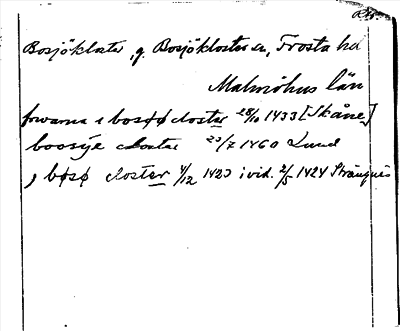 Bosjökloster g. Bosjöklosters sn, Frosta hd
Malmöhus län
forwarna i bosøø closter 28/10 1433 [Skåne]
boosýe closter 23/7 1460 Lund
j bøsø closter 4/12 1423 i vid. 2/5 1424 Strängnäs